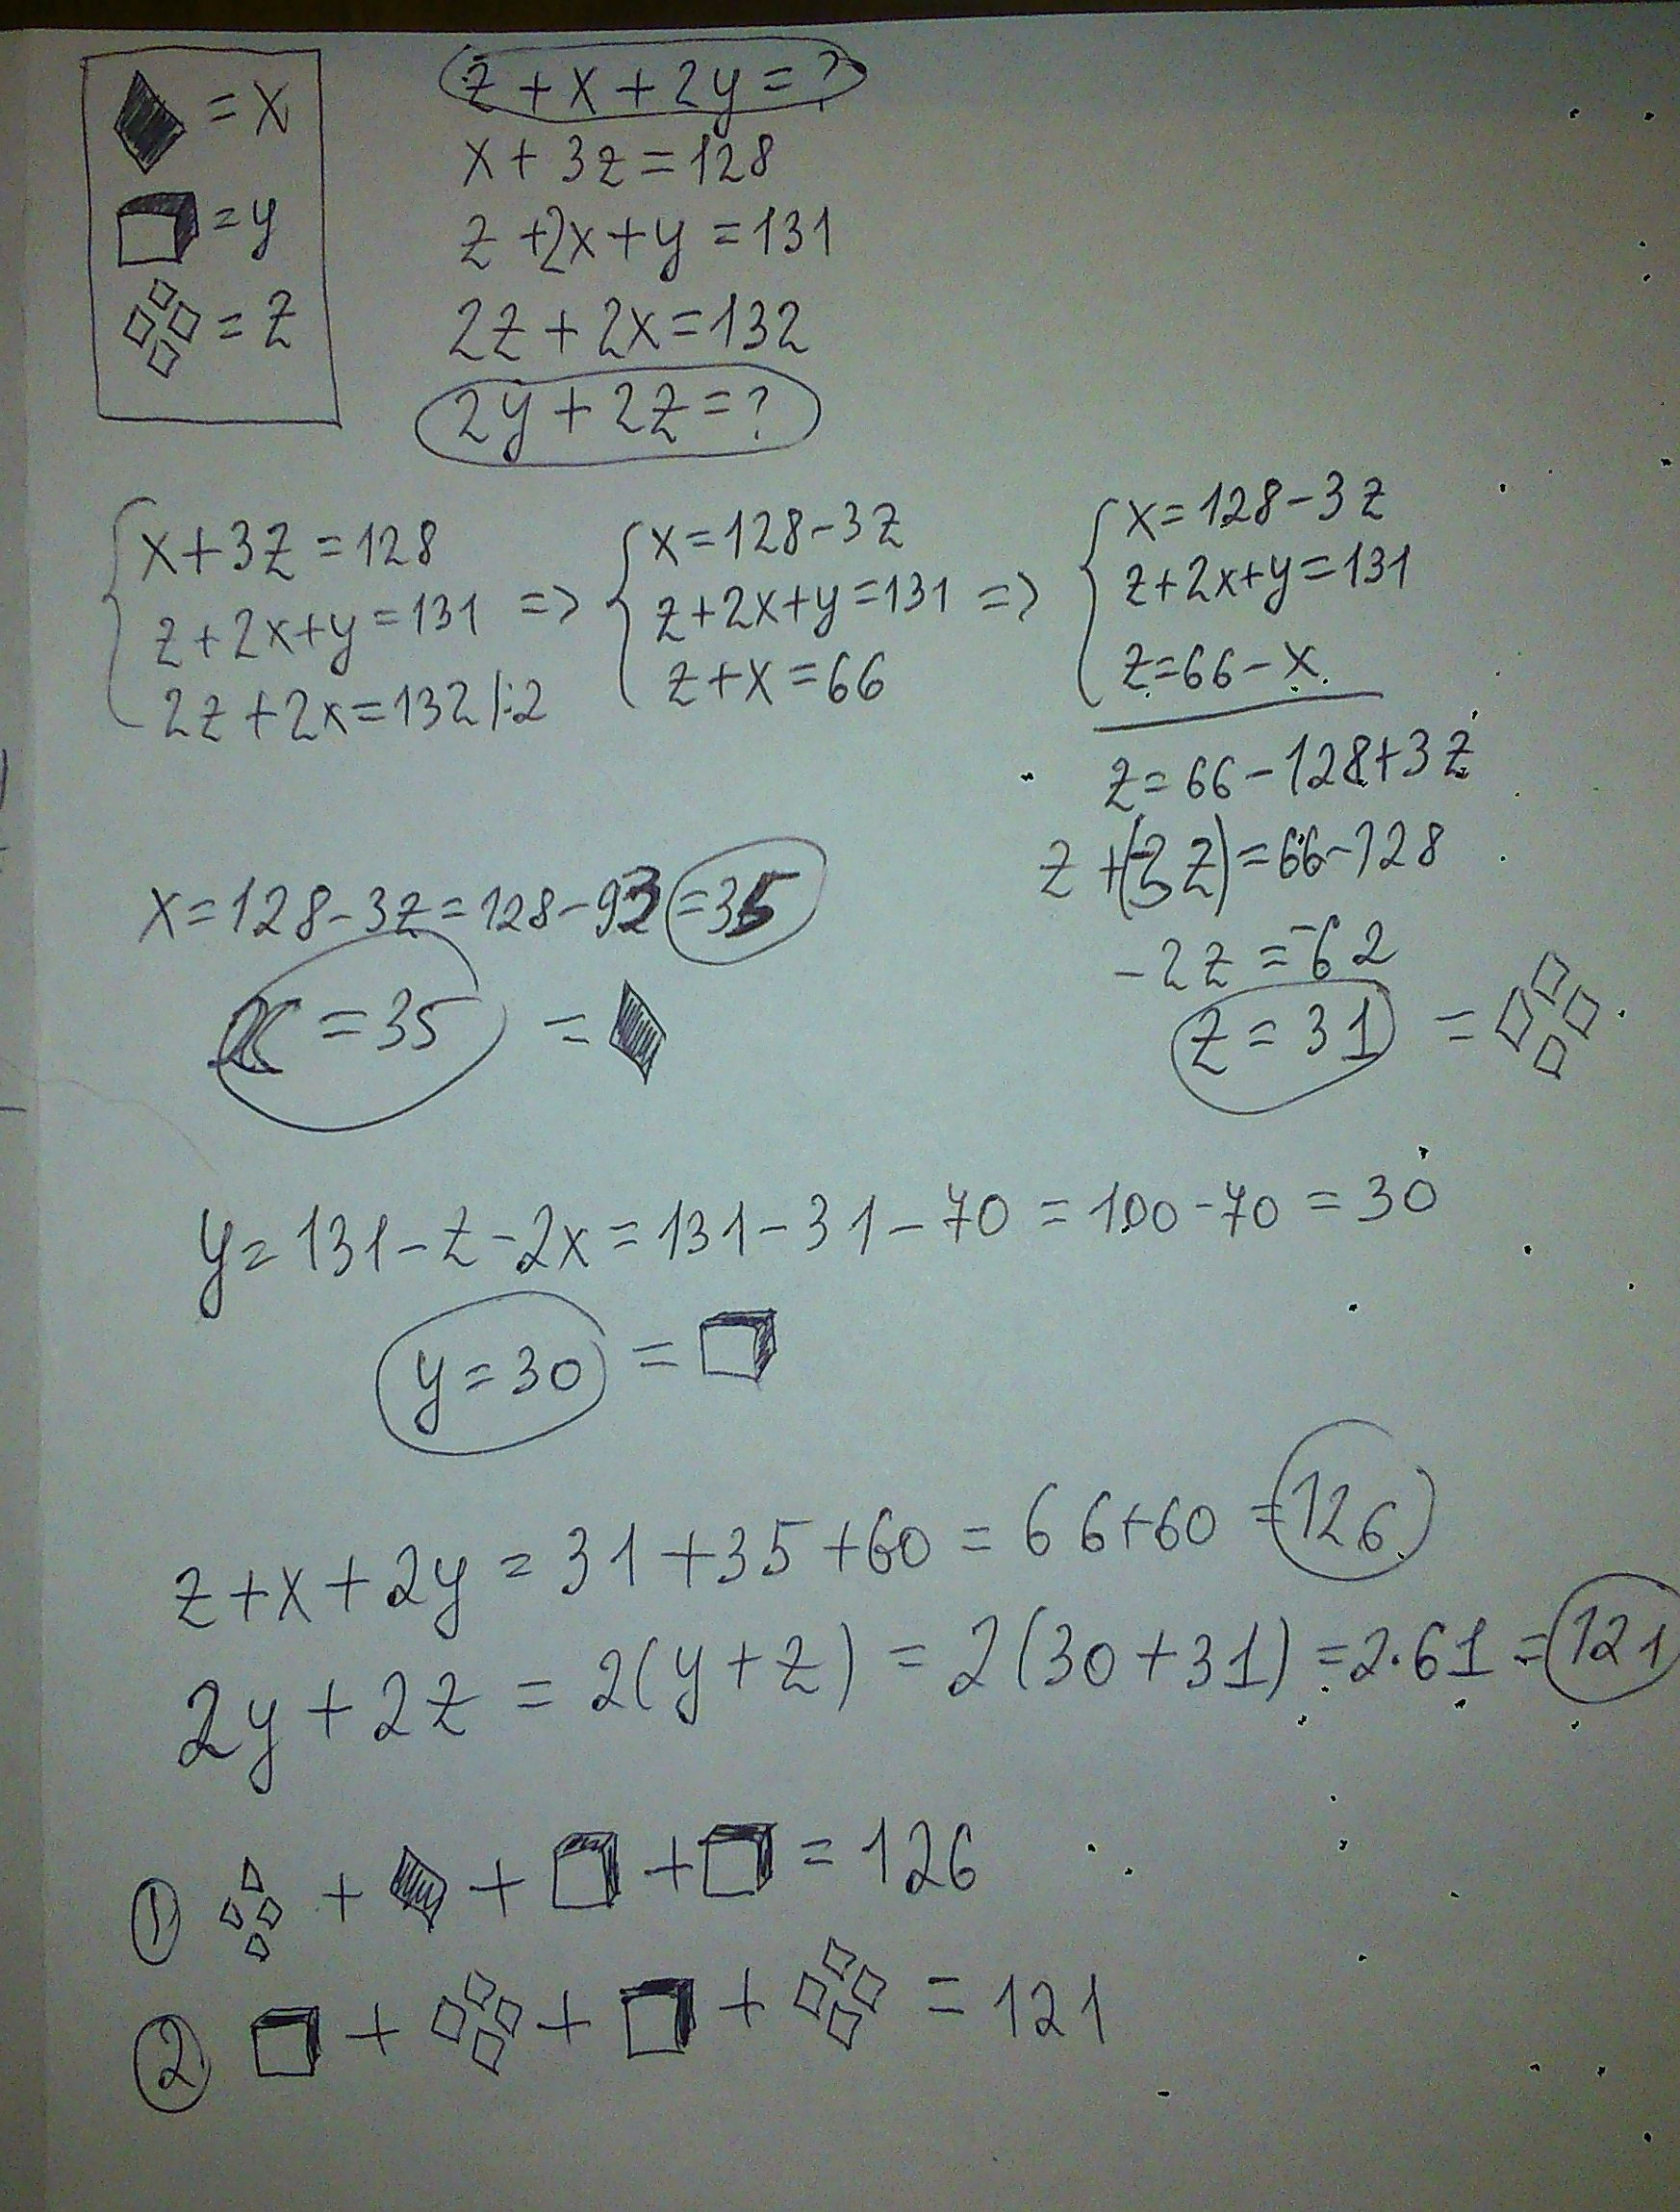 = x
= y
= z
z + x + 2y = ?
x + 3z = 128
z + 2x + y = 131
2z + 2x = 132
2y + 2z = ?
x + 3z = 128
z + 2x + y = 131 =>
2z + 2x = 132 |:2
x = 128 - 3z
z + 2x + y = 131 =>
z + x = 66
x = 128 - 3z
z + 2x + y = 131
z = 66 - x
z = 66 - 128 + 3z
z + (-3z) = 66 - 128
-2z = -62
z = 31 =
x = 128 - 3z = 128 - 93 = 35
x = 35 =
y = 131 - z - 2x = 131 - 31 - 70 = 100 - 70 = 30
y = 30 =
z + x + 2y = 31 + 35 + 60 = 66 + 60 = 126
2y + 2z = 2(y + z) = 2(30 + 31) = 2·61 = 121
1 + + + = 126
2 + + + = 121